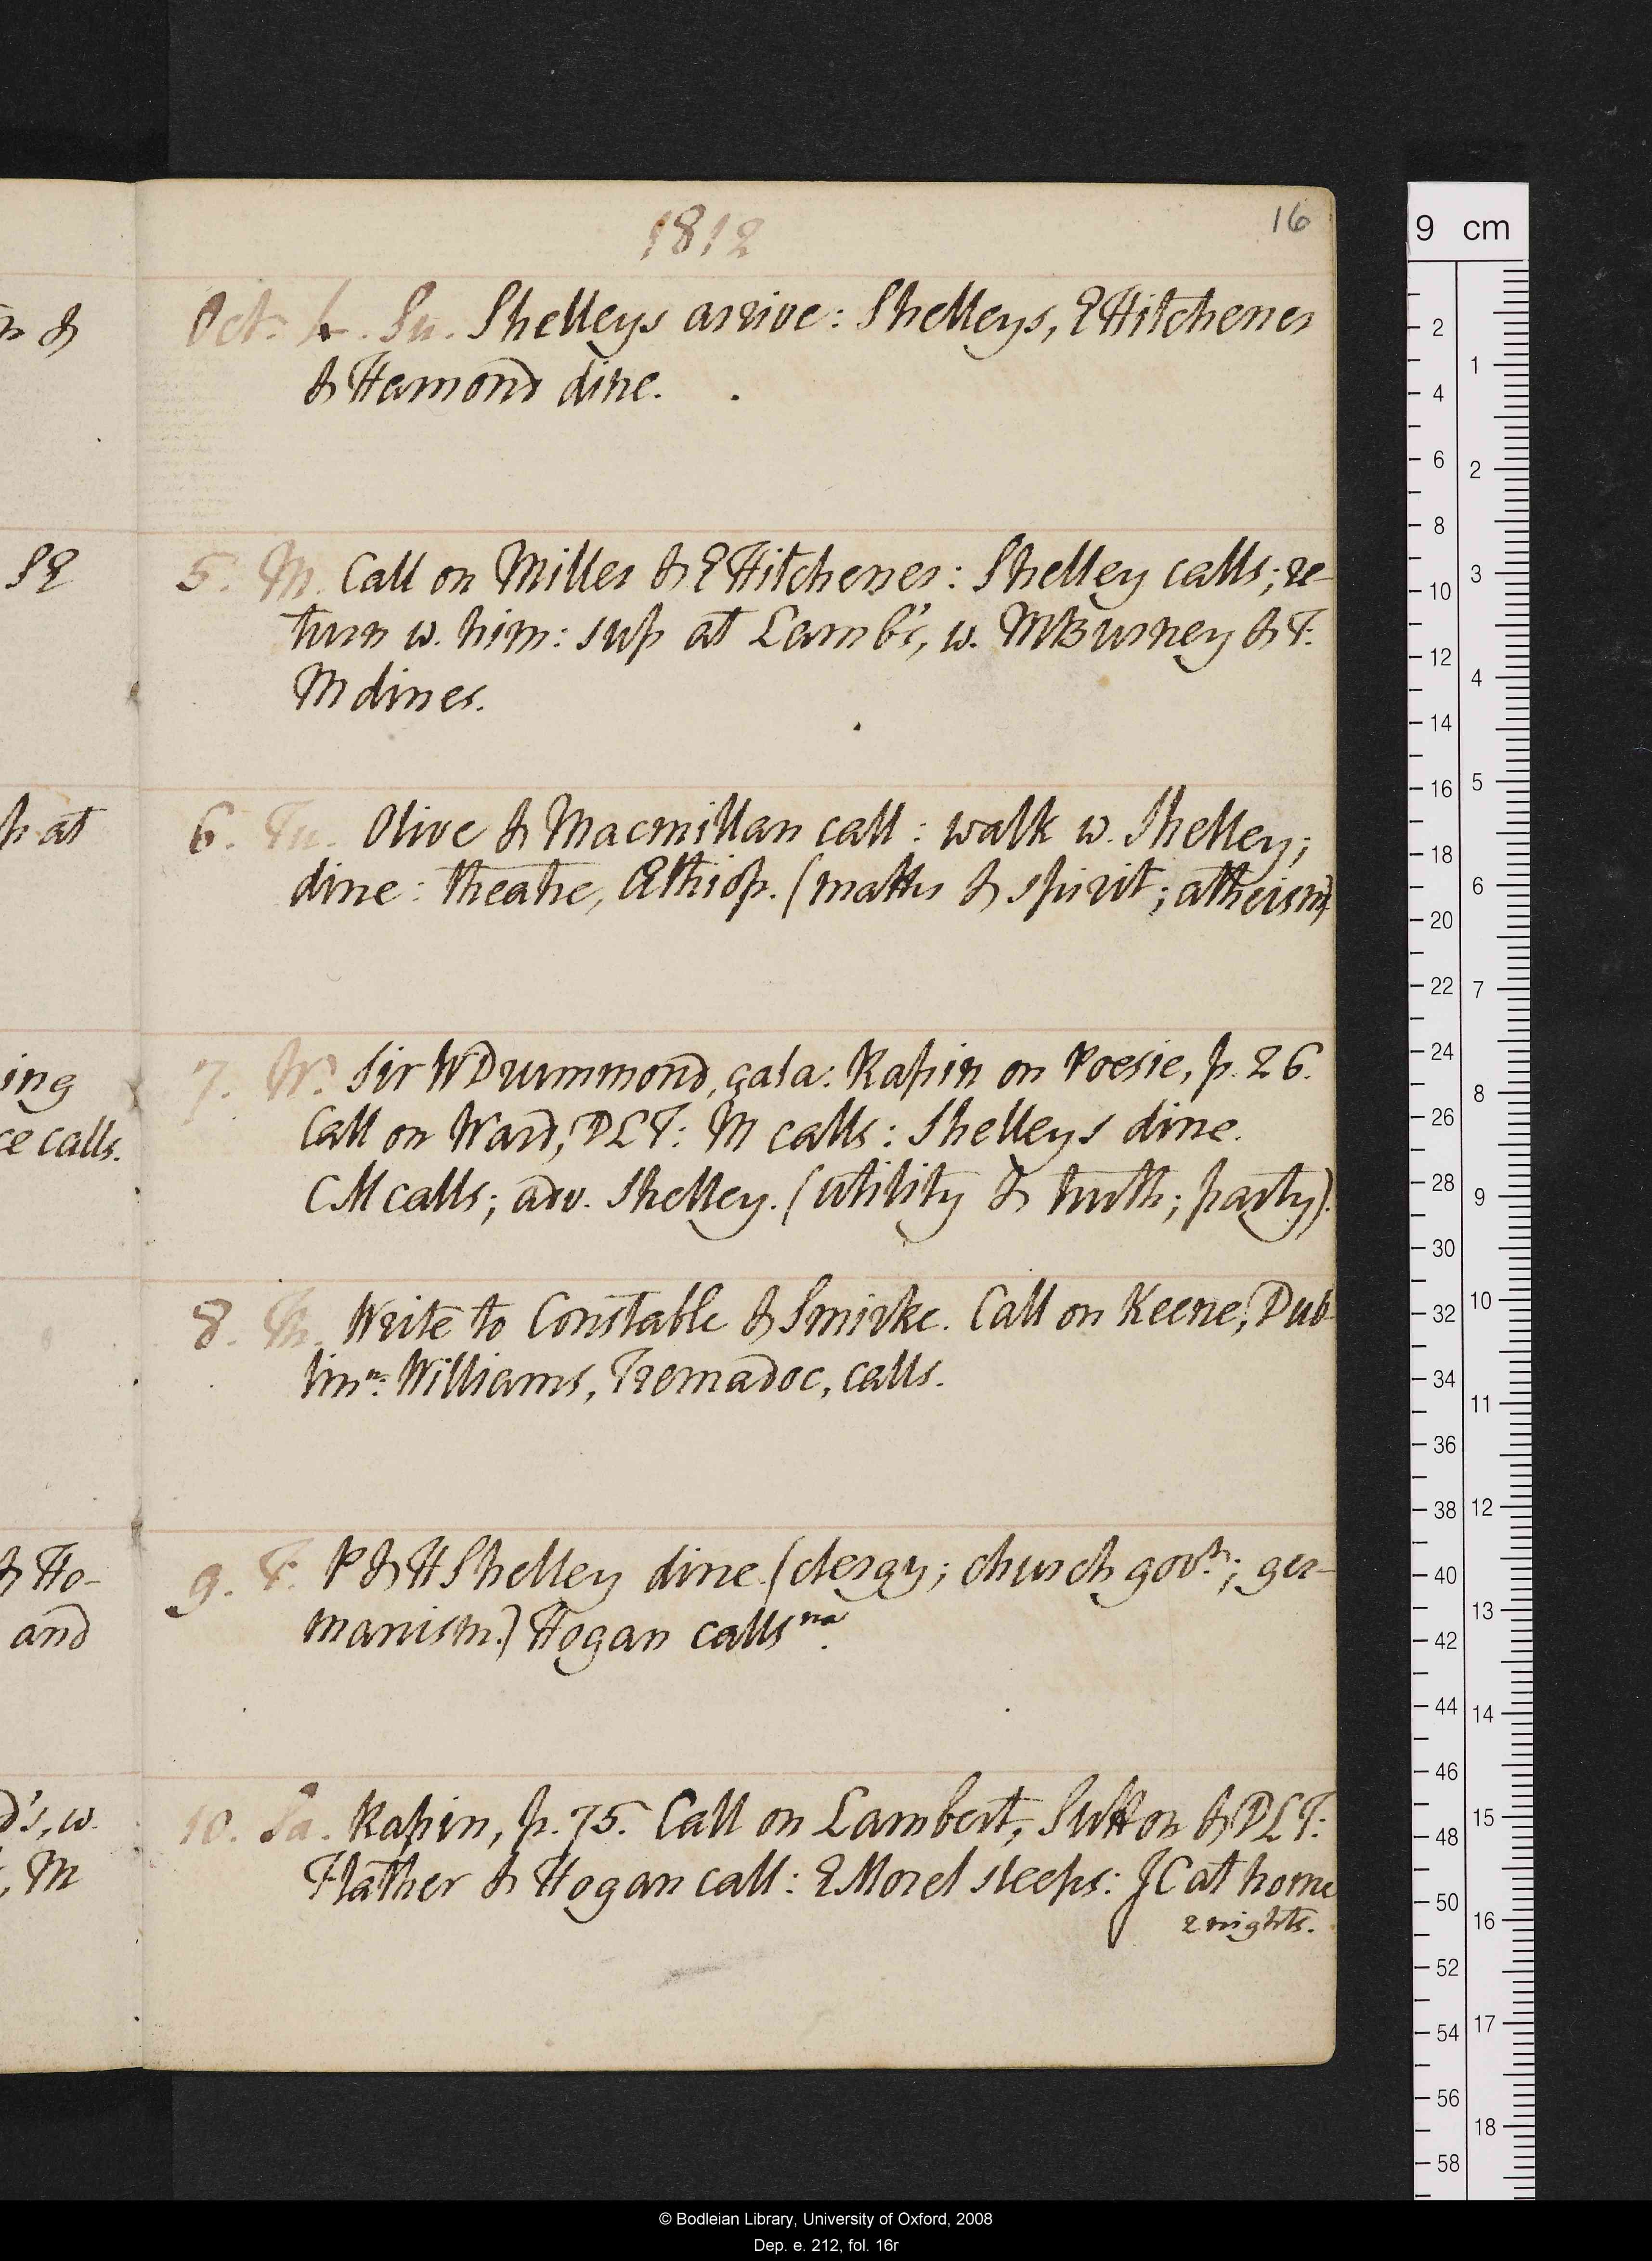 1812
16
Oct. 4. Su. Shelleys arrive: Shelleys, E Hitchener
& Hamond dine.
5. M. Call on Miller & E Hitchener: Shelley calls; re-
turn w. him: sup at Lamb's, w. M Burney & T.
M dines.
6. Tu. Olive & Macmillan call: walk w. Shelley;
dine: theatre, Æthiop. (matter & spirit; atheism)
7. W. Sir W Drummond, çala: Rapin on Poesie, p. 26.
Call on Ward, DLT: M calls: Shelleys dine.
CM calls; adv. Shelley. (utility & truth; party).
8. Th. Write to Constable & Smirke. Call on Keene, Dub-
lin na: Williams, Tremadoc, calls.
9. F. P & H Shelley dine (clergy; church govt.; ger-
manism.) Hogan calls na.
10. Sa. Rapin, p. 75. Call on Lambert, Sutton & DLT:
Flather & Hogan call: E Morel sleeps: JC at home
2 nights.
n &
SE
p at
ing
ce calls.
& Ho-
and
d's, w.
, M
9 cm
2
4
6
8
10
12
14
16
18
20
22
24
26
28
30
32
34
36
38
40
42
44
46
48
50
52
54
56
58
1
2
3
4
5
6
7
8
9
10
11
12
13
14
15
16
17
18
© Bodleian Library, University of Oxford, 2008
Dep. e. 212, fol. 16r